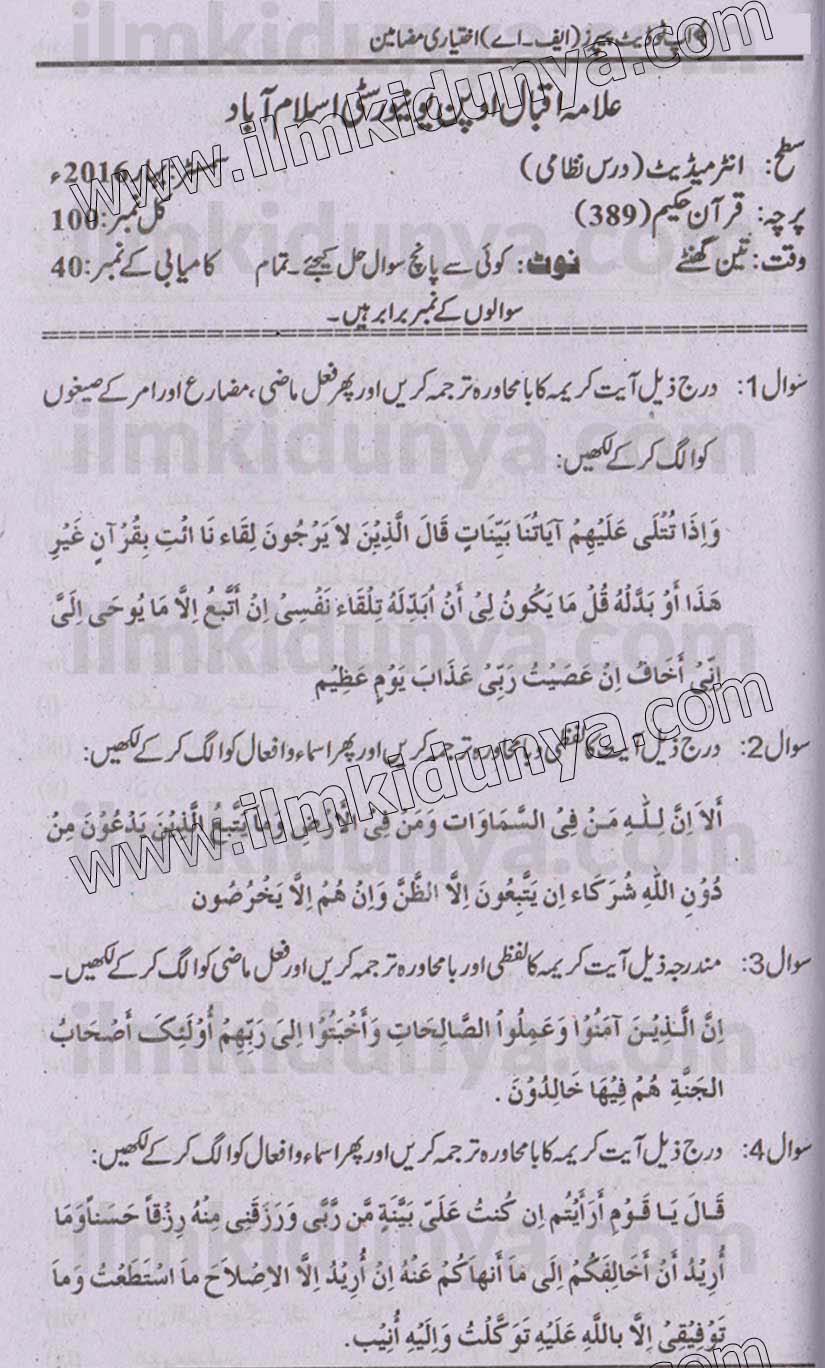 اپ ٹو ڈیٹ پیپرز (ایف۔اے) اختیاری مضامین
علامہ اقبال اوپن یونیورسٹی اسلام آباد
سطح: انٹرمیڈیٹ (درس نظامی) سمسٹر: بہار 2016ء
پرچہ: قرآن حکیم (389) کل نمبر: 100
وقت: تین گھنٹے نوٹ: کوئی سے پانچ سوال حل کیجئے۔ تمام کامیابی کے نمبر: 40
سوالوں کے نمبر برابر ہیں۔
سوال 1: درج ذیل آیت کریمہ کا بامحاورہ ترجمہ کریں اور پھر فعل ماضی، مضارع اور امر کے صیغوں
کو الگ کر کے لکھیں:
وَاِذَا تُتْلَى عَلَيْهِمْ آيَاتُنَا بَيِّنَاتٍ قَالَ الَّذِيْنَ لاَ يَرْجُونَ لِقَاء نَا ائْتِ بِقُرْآنٍ غَيْرِ
هَذَا أَوْ بَدِّلْهُ قُلْ مَا يَكُونُ لِيْ أَنْ اُبَدِّلَهُ تِلْقَاء نَفْسِيْ اِنْ أَتَّبِعُ اِلَّا مَا يُوحَى اِلَيَّ
اِنِّيْ أَخَافُ اِنْ عَصَيْتُ رَبِّيْ عَذَابَ يَوْمٍ عَظِيْمٍ
سوال 2: درج ذیل آیت کا لفظی و بامحاورہ ترجمہ کریں اور پھر اسماء و افعال کو الگ کر کے لکھیں:
أَلاَ اِنَّ لِلّٰهِ مَنْ فِيْ السَّمَاوَات وَمَنْ فِيْ الْأَرْضِ وَمَا يَتَّبِعُ الَّذِيْنَ يَدْعُوْنَ مِنْ
دُوْنِ اللّٰهِ شُرَكَاء اِن يَتَّبِعُونَ اِلَّا الظَّنَّ وَاِنْ هُمْ اِلَّا يَخْرُصُون
سوال 3: مندرجہ ذیل آیت کریمہ کا لفظی اور بامحاورہ ترجمہ کریں اور فعل ماضی کو الگ کر کے لکھیں۔
اِنَّ الَّذِيْنَ آمَنُوْا وَعَمِلُوا الصَّالِحَاتِ وَأَخْبَتُوْا اِلىَ رَبِّهِمْ أُوْلَئِكَ أَصْحَابُ
الجَنَّةِ هُمْ فِيْهَا خَالِدُوْنَ.
سوال 4: درج ذیل آیت کریمہ کا بامحاورہ ترجمہ کریں اور پھر اسماء و افعال کو الگ کر کے لکھیں:
قَالَ يَا قَوْمِ أَرَأَيْتُم اِن كُنتُ عَلَىَ بَيِّنَةٍ مِّن رَّبِّى وَرَزَقَنِى مِنْهُ رِزْقاً حَسَناً وَمَا
أُرِيْدُ أَنْ أُخَالِفَكُمْ اِلَى مَا أَنهاَكُمْ عَنْهُ اِنْ أُرِيْدُ اِلَّا الاِصْلَاحَ مَا اسْتَطَعْتُ وَمَا
تَوْفِيْقِىْ اِلَّا بِاللَّهِ عَلَيْهِ تَوَكَّلْتُ وَاِلَيْهِ أُنِيْب.
www.ilmkidunya.com
www.ilmkidunya.com
ilmkidunya.com
ilmkidunya.com
ilmkidunya.com
ilmkidunya.com
ilmkidunya.com
ilmkidunya.com
ilmkidunya.com